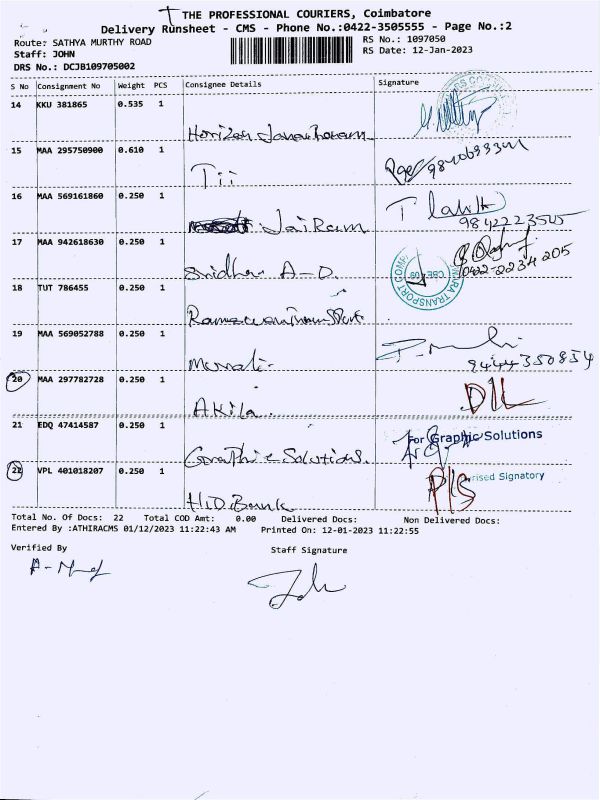 THE PROFESSIONAL COURIERS, Coimbatore
Delivery Runsheet - CMS - Phone No.:0422-3505555 - Page No.:2
Route: SATHYA MURTHY ROAD
RS No.: 1097050
Staff: JOHN
RS Date: 12-Jan-2023
DRS No.: DCJB109705002
S No Consignment No Weight PCS Consignee Details Signature
14 KKU 381865 0.535 1
Horizon
15 MAA 295750900 0.610 1
Tii
16 MAA 569161860 0.250 1
Jai Ram
9842223505
17 MAA 942618630 0.250 1
Sridhar A-D.
0422-2234205
TRANSPORT COMP
CBE-09
18 TUT 786455 0.250 1
19 MAA 569052788 0.250 1
Murali.
9444350854
20 MAA 297782728 0.250 1
Akila.
D/L
21 EDQ 47414587 0.250 1
For Graphic Solutions
Graphic Solutions.
22 VPL 401018207 0.250 1
rised Signatory
Bank
Total No. Of Docs: 22 Total COD Amt: 0.00 Delivered Docs: Non Delivered Docs:
Entered By :ATHIRACMS 01/12/2023 11:22:43 AM Printed On: 12-01-2023 11:22:55
Verified By
Staff Signature